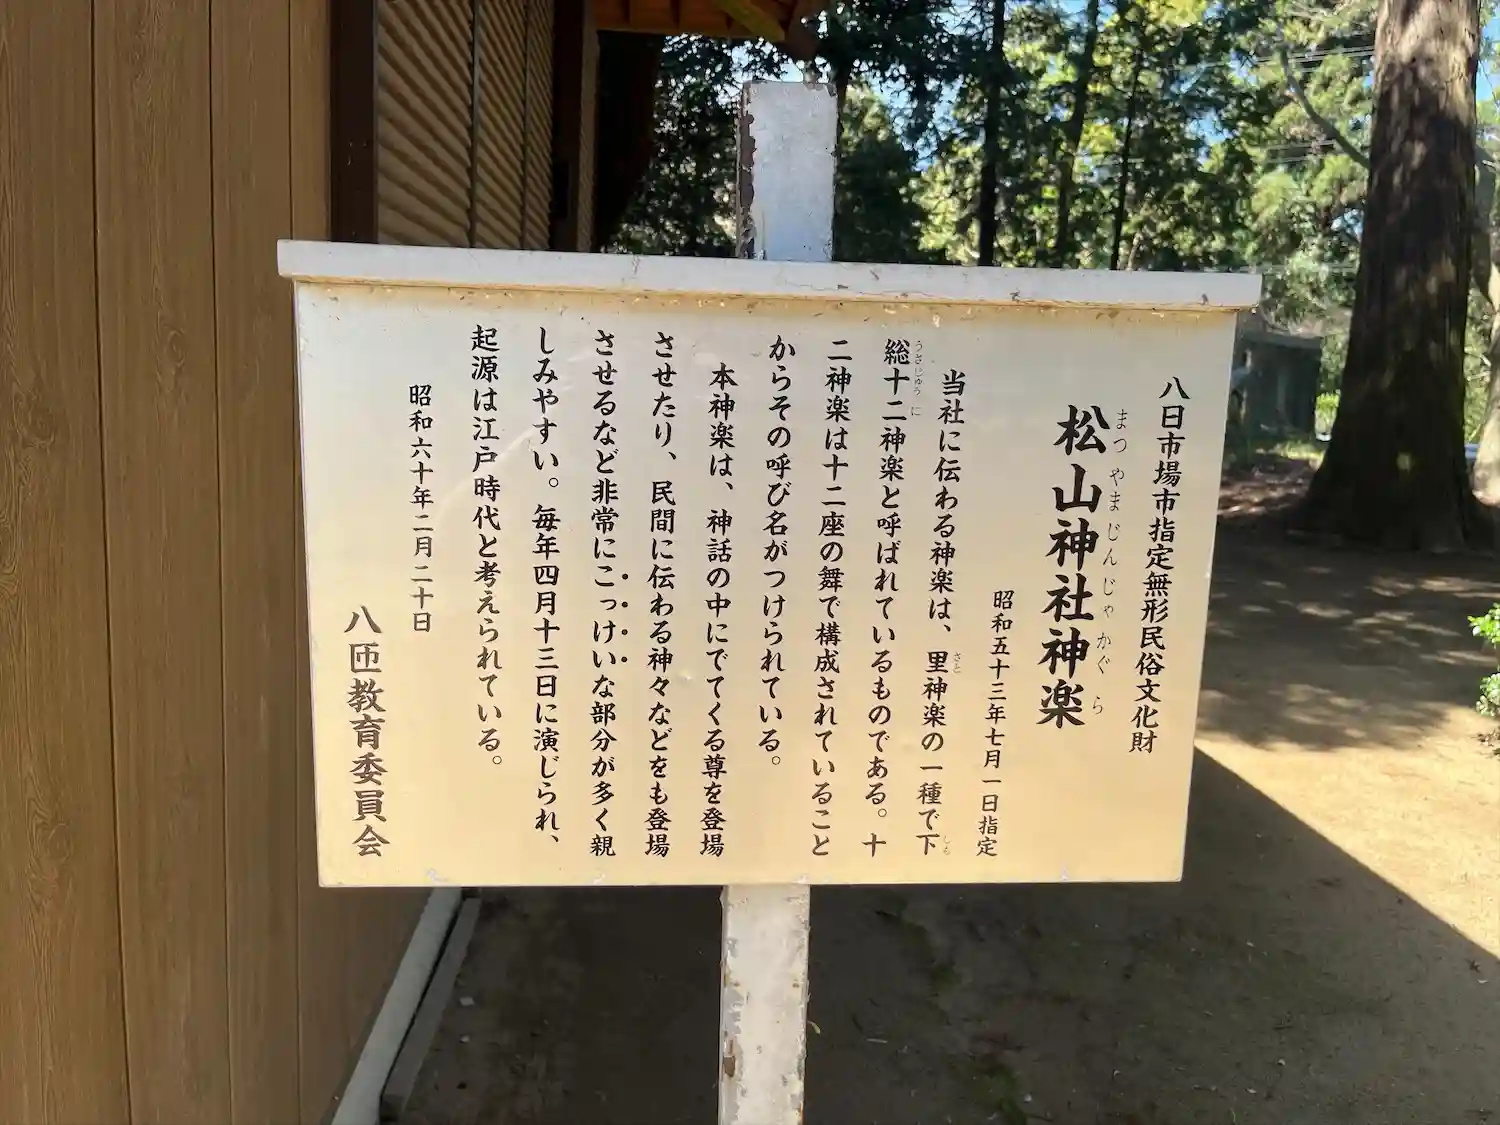 八日市場市指定無形民俗文化財
松山神社神楽
まつやまじんじゃかぐら
昭和五十三年七月一日指定
当社に伝わる神楽は、里神楽の一種で下
さと
しも
総十二神楽と呼ばれているものである。十
うさじゅうに
二神楽は十二座の舞で構成されていること
からその呼び名がつけられている。
本神楽は、神話の中にでてくる尊を登場
させたり、民間に伝わる神々などをも登場
させるなど非常にこっけいな部分が多く親
しみやすい。毎年四月十三日に演じられ、
起源は江戸時代と考えられている。
昭和六十年二月二十日
八匝教育委員会